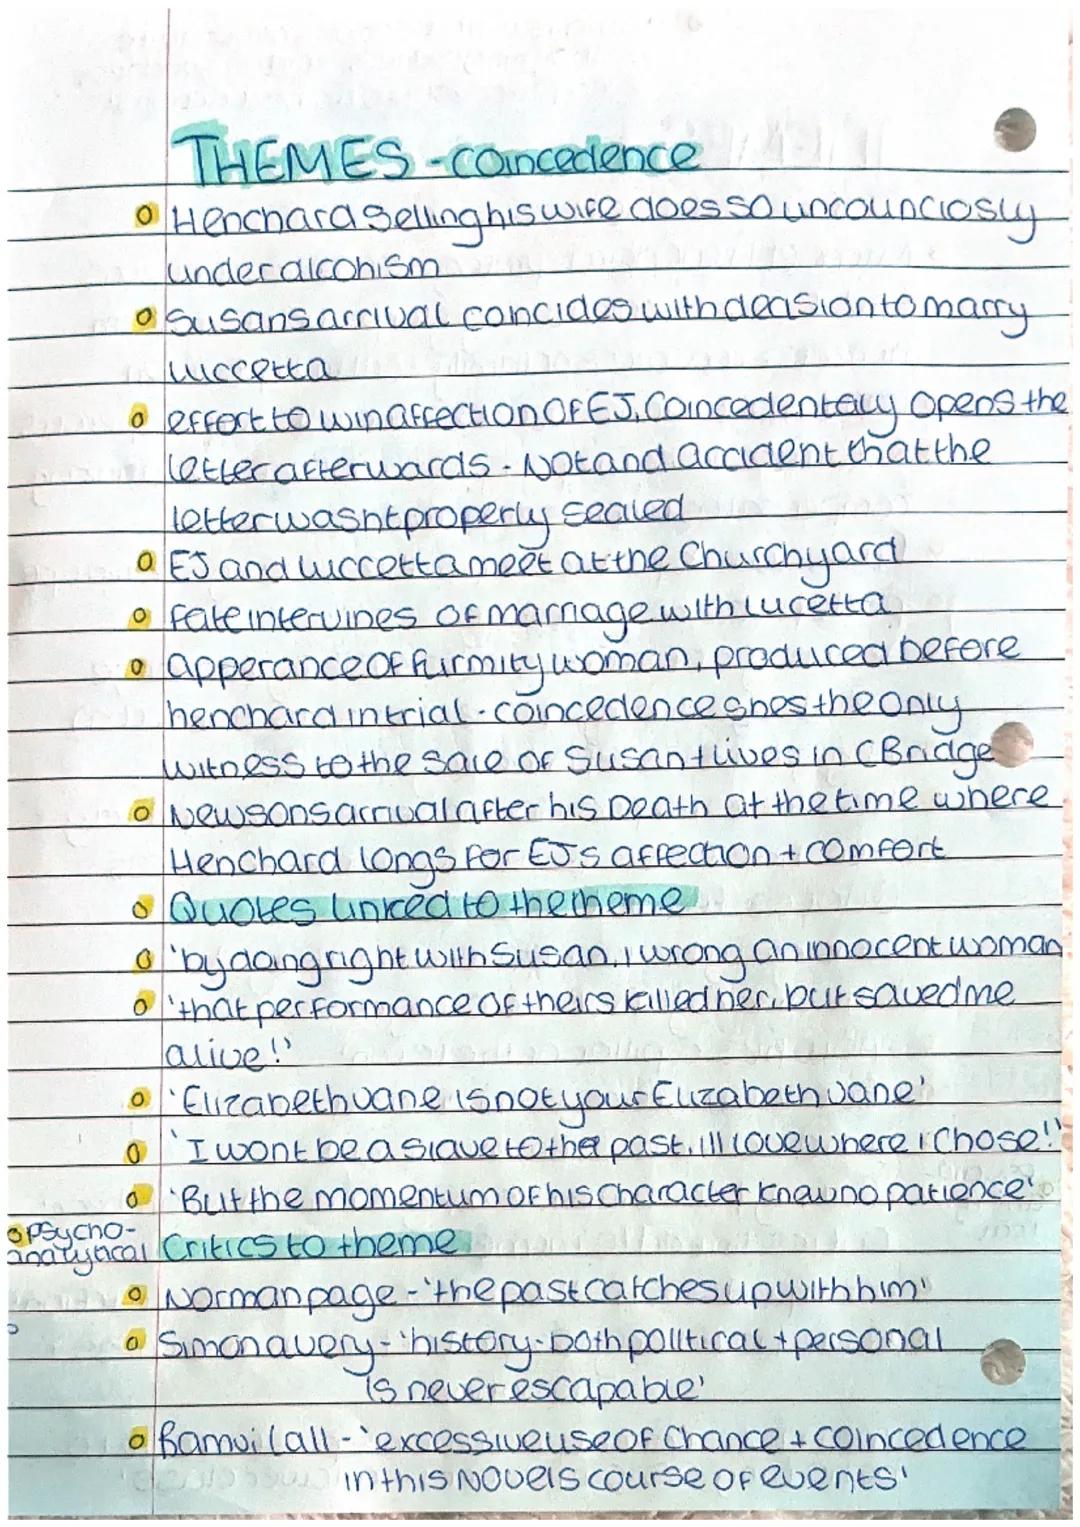 THEMES - coincedence
Henchard selling his wife does so uncounciosly
under alcohism
Susans arrival coincides with deasion to marry
luccetta
effort to win affection of EJ. Coincedentally opens the
letter afterwards - Not and accident that the
letter wasnt properly sealed
EJ and luccetta meet at the Churchyard
fate intervines of marriage with lucetta
apperance of furmity woman, produced before
henchard in trial - coincedence shes the only
witness to the sale of Susan + lives in CBridge
Newsons arrival after his Death at the time where
Henchard longs for EJs affection + comfort
Quotes linked to the theme
'by doing right with Susan, I wrong an innocent woman
'that performance of theirs killed her, but saved me
alive!'
'Elizabeth Jane is not your Elizabeth Jane'
'I wont be a slave to the past, ill love where I chose!'
'But the momentum of his character knew no patience'
psycho-
analytical Critics to theme
Norman page - 'the past catches up with him'
Simon avery - 'history - both political + personal
is never escapable'
Ramji lall - 'excessive use of Chance + coincedence
in this Novels course of events'